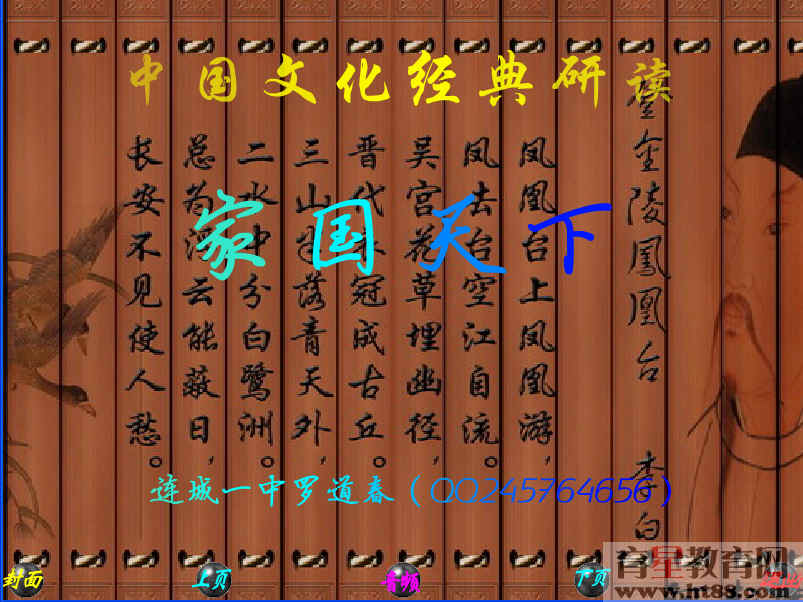 中国文化经典研读
登金陵鳳凰台 李白
凤凰台上凤凰游，
凤去台空江自流。
吴宫花草埋幽径，
晋代衣冠成古丘。
三山半落青天外，
二水中分白鹭洲。
总为浮云能蔽日，
长安不见使人愁。
家国天下
连城一中罗道春（QQ245764656）
封面
上页
音频
下页
退出
育星教育网
www.ht88.com